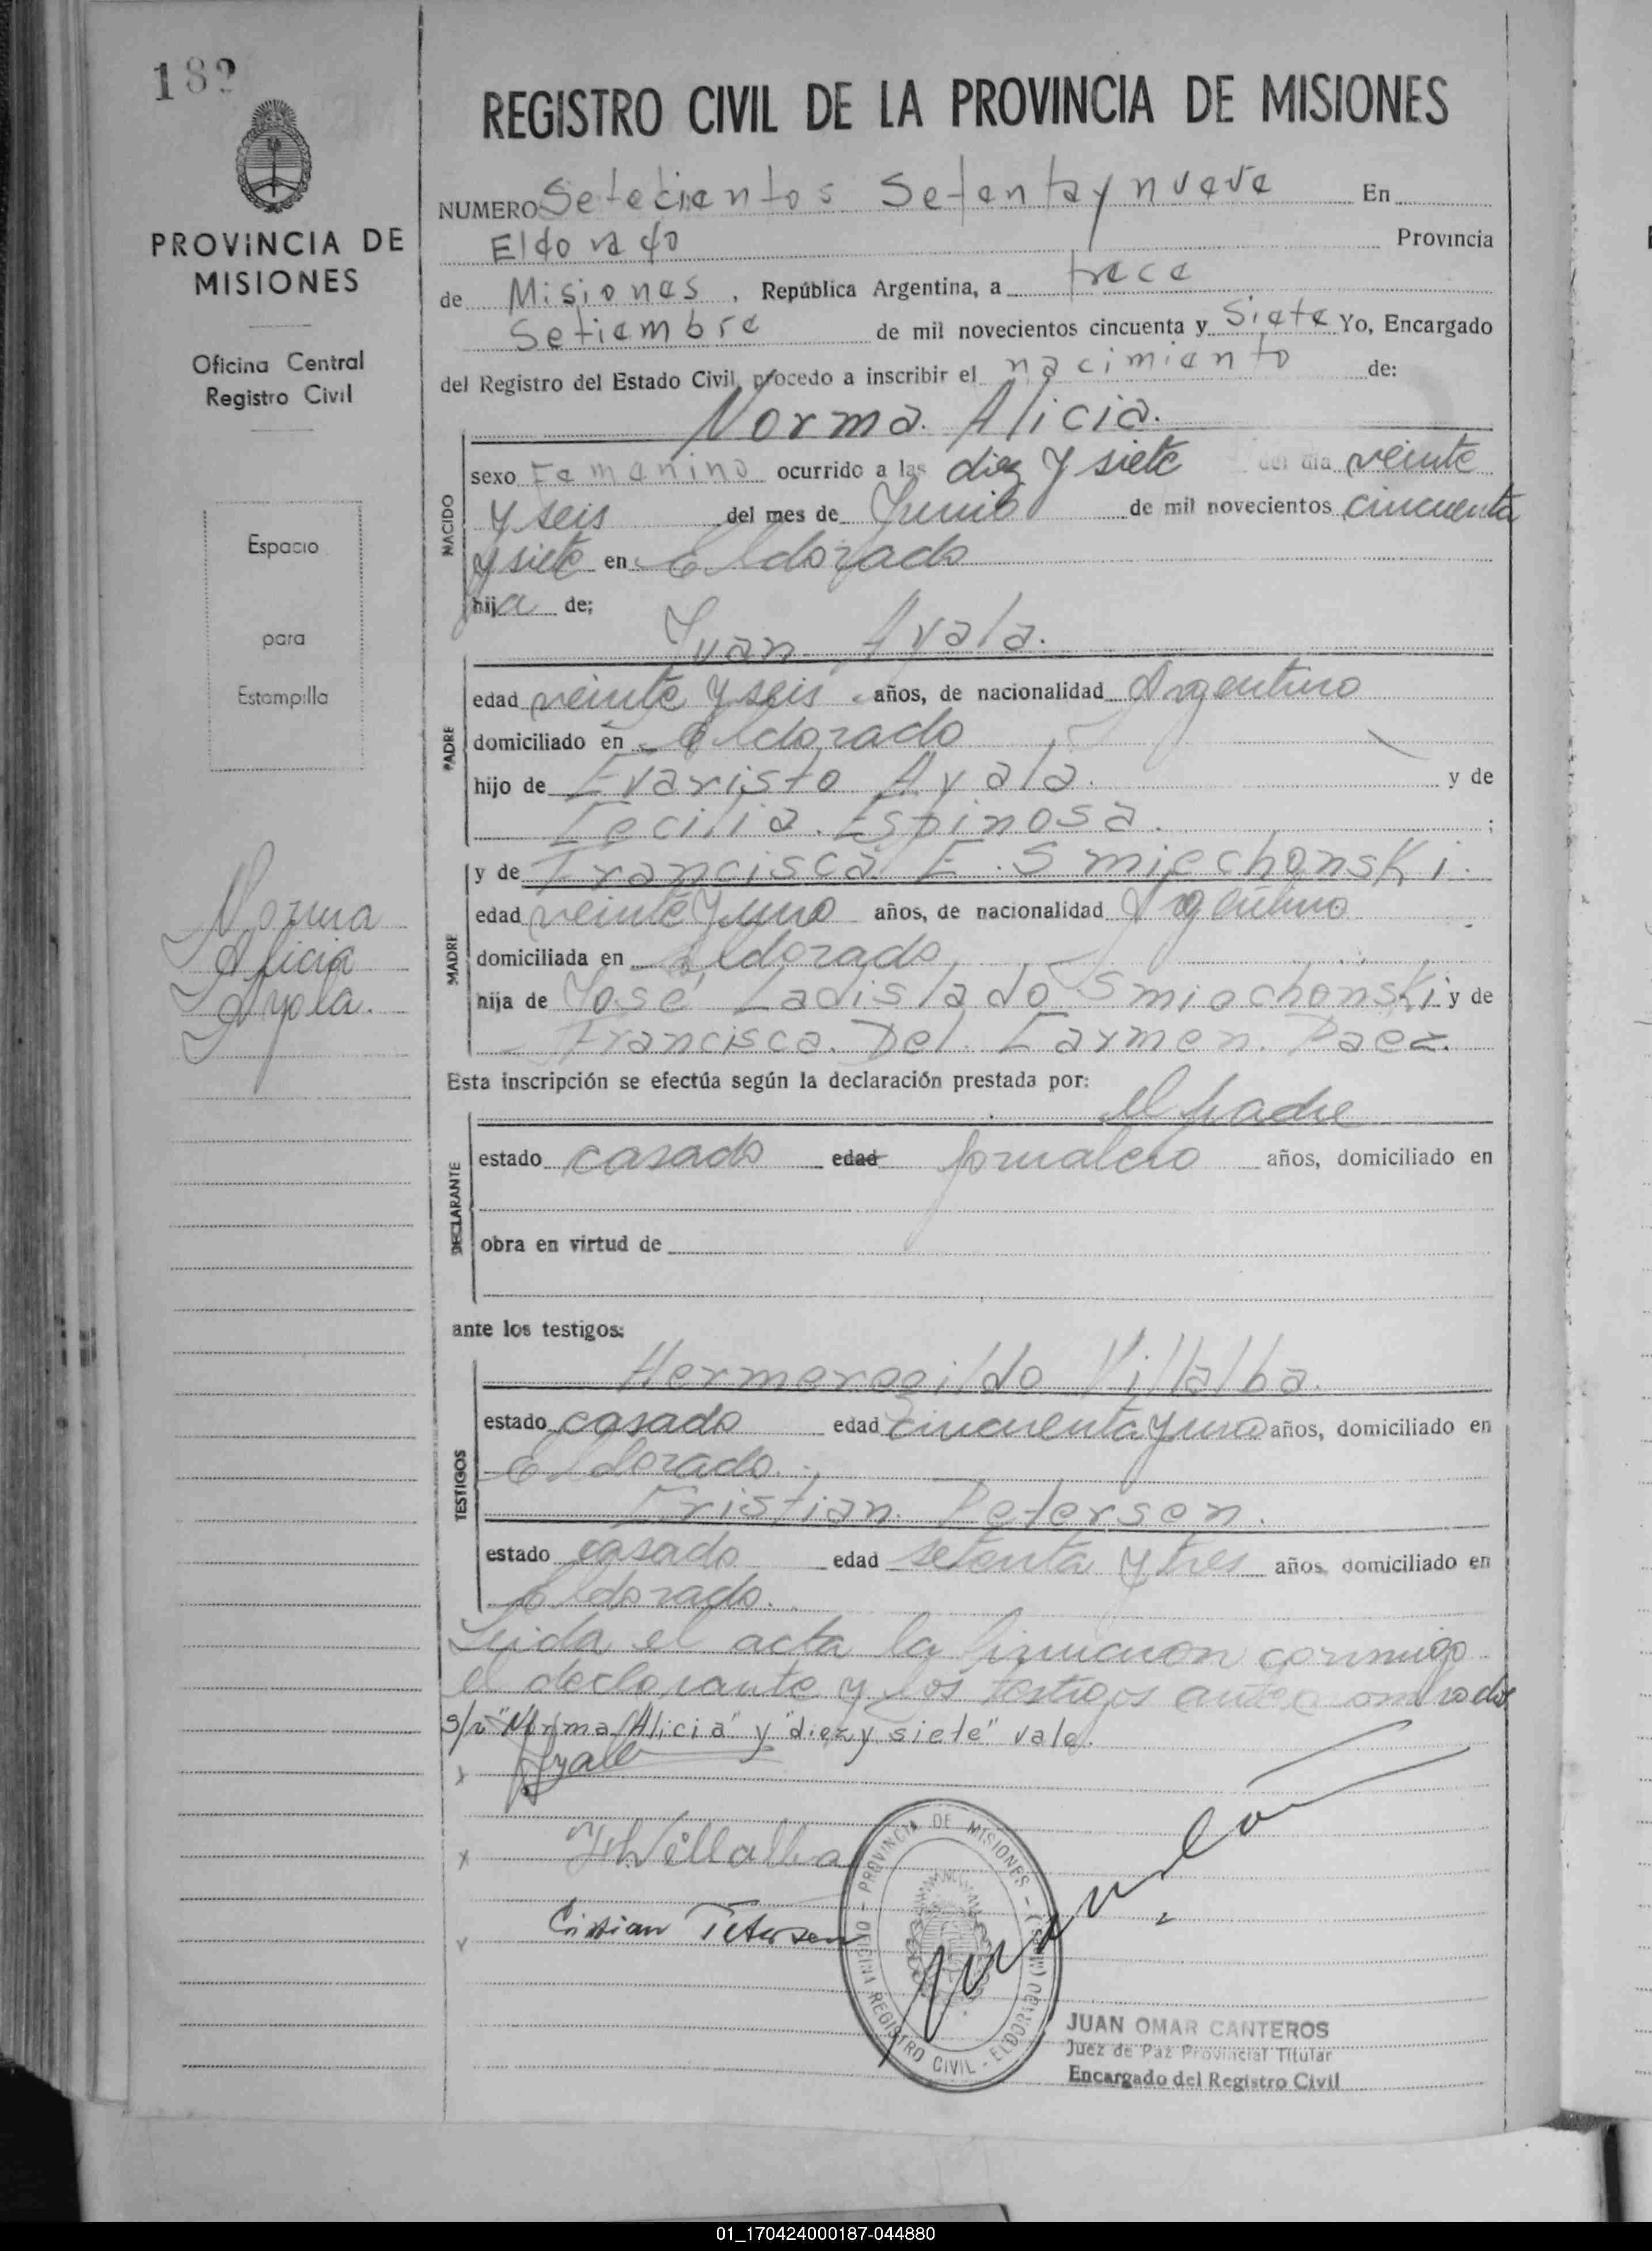 182
PROVINCIA DE
MISIONES
Oficina Central
Registro Civil
Espacio
para
Estampilla
Norma
Alicia
Ayala.
REGISTRO CIVIL DE LA PROVINCIA DE MISIONES
NUMERO Setecientos Setenta y nueve En
Eldorado Provincia
de Misiones, República Argentina, a trece
Setiembre de mil novecientos cincuenta y Siete Yo, Encargado
del Registro del Estado Civil, procedo a inscribir el nacimiento de:
Norma Alicia.
NACIDO
sexo Femenino ocurrido a las diez y siete del dia veinte
y seis del mes de Junio de mil novecientos cincuenta
y siete en Eldorado
hija de;
Juan Ayala.
PADRE
edad veinte y seis años, de nacionalidad Argentino
domiciliado en Eldorado
hijo de Evaristo Ayala. y de
Cecilia Espinosa. ;
y de Francisca E. Smiechonski.
MADRE
edad veinte y uno años, de nacionalidad Argentino
domiciliada en Eldorado
hija de José Ladislado Smiechonski y de
Francisca Del Carmen Paez.
Esta inscripción se efectúa según la declaración prestada por:
el padre
DECLARANTE
estado casado edad jornalero años, domiciliado en
obra en virtud de
ante los testigos:
TESTIGOS
Hermenegildo Villalba.
estado casado edad cincuenta y uno años, domiciliado en
Eldorado.
Cristian Petersen.
estado casado edad setenta y tres años, domiciliado en
Eldorado.
Leida el acta la firmaron conmigo
el declarante y los testigos antenombrados
s/r "Norma Alicia" y "diez y siete" vale.
x Ayala
x H Villalba
x Cristian Petersen
OFICINA REGISTRO CIVIL - ELDORADO (MIS.) - PROVINCIA DE MISIONES -
JUAN OMAR CANTEROS
Juez de Paz Provincial Titular
Encargado del Registro Civil
01_170424000187-044880